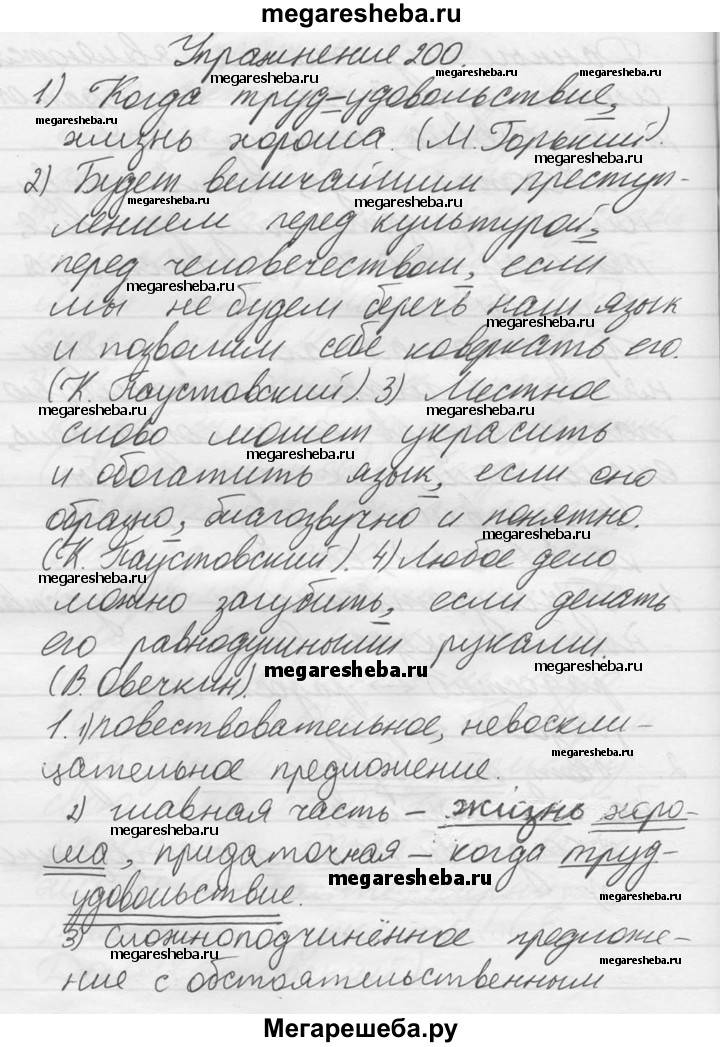 megaresheba.ru
Упражнение 200.
megaresheba.ru
1) Когда труд–удовольствие,
megaresheba.ru
megaresheba.ru
жизнь хороша. (М. Горький).
megaresheba.ru
2) Будет величайшим преступ-
megaresheba.ru
megaresheba.ru
лением перед культурой,
megaresheba.ru
перед человечеством, если
megaresheba.ru
мы не будем беречь наш язык
megaresheba.ru
и позволим себе коверкать его.
(К. Паустовский). 3) Местное
megaresheba.ru
megaresheba.ru
слово может украсить
megaresheba.ru
и обогатить язык, если оно
образно, благозвучно и понятно.
megaresheba.ru
(К. Паустовский). 4) Любое дело
megaresheba.ru
можно загубить, если делать
его равнодушными руками.
megaresheba.ru
megaresheba.ru
(В. Овечкин).
1. 1) повествовательное, невоскли-
megaresheba.ru
цательное предложение.
2) главная часть – жизнь хоро-
megaresheba.ru
ша, придаточная – когда труд-
megaresheba.ru
удовольствие.
3) Сложноподчинённое предложе-
megaresheba.ru
megaresheba.ru
ние с обстоятельственным
Мегарешеба.ру